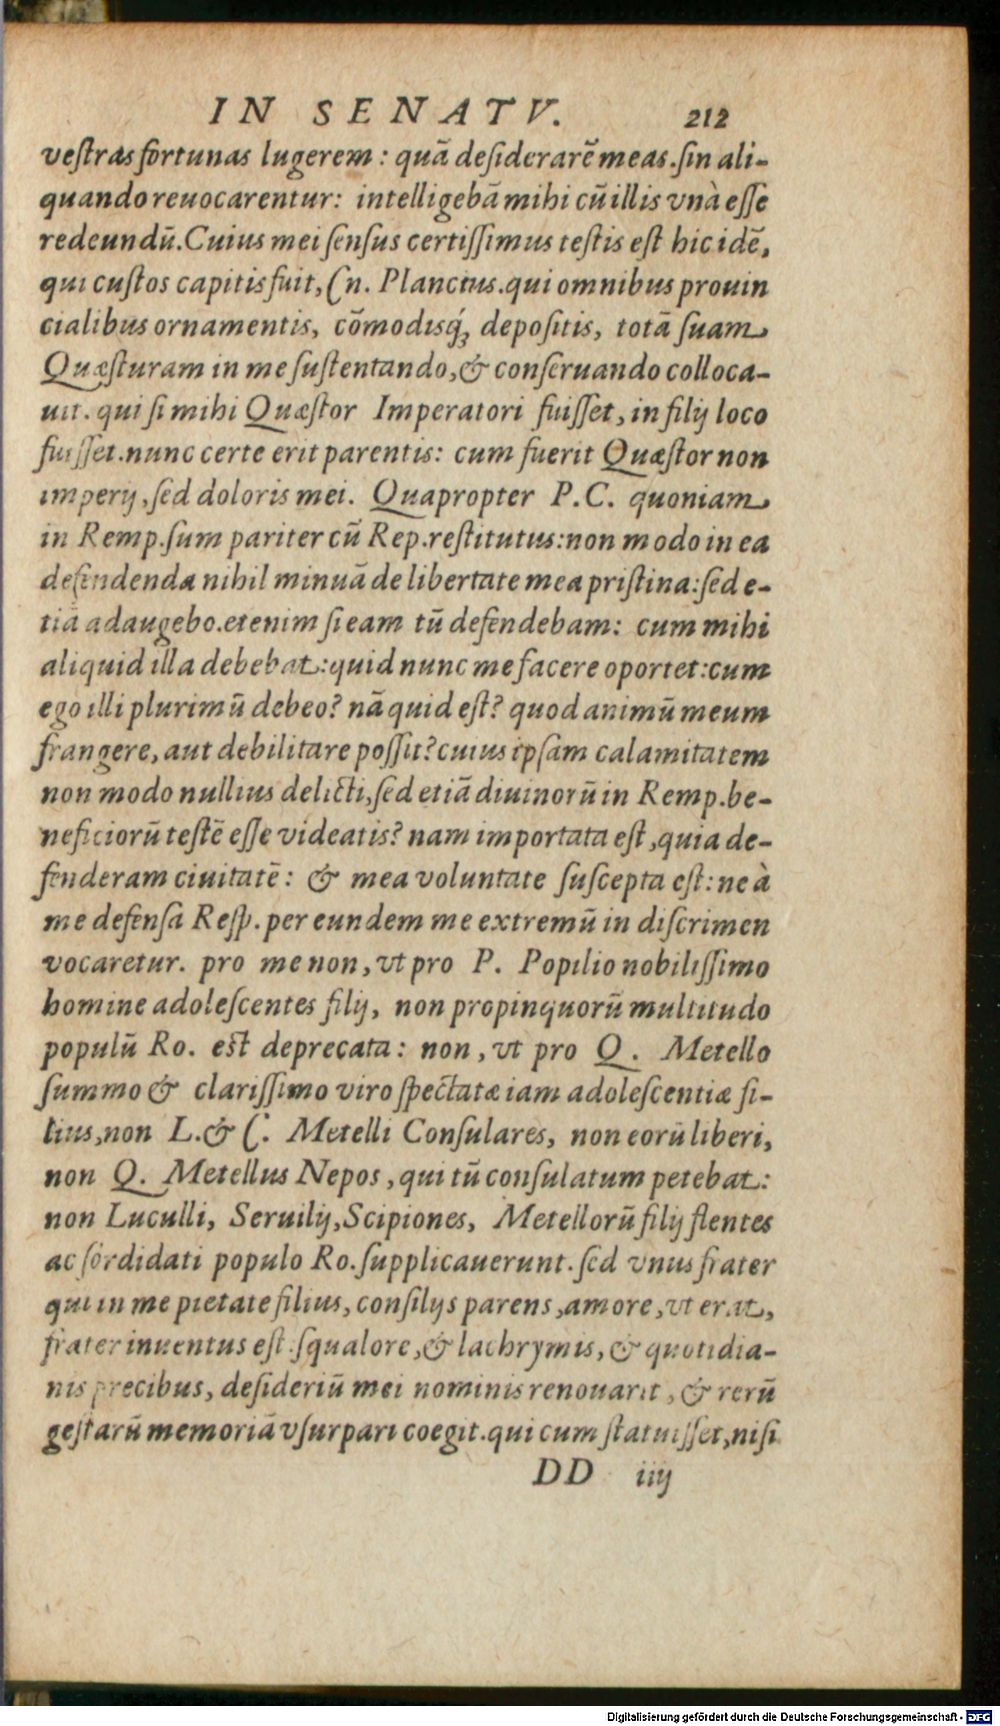 IN SENATV. 212
vestras fortunas lugerem: quā desiderarē meas. sin ali-
quando reuocarentur: intelligebā mihi cū illis vnà esse
redeundū. Cuius mei sensus certissimus testis est hic idē,
qui custos capitis fuit, Cn. Planctus. qui omnibus prouin
cialibus ornamentis, cōmodisq́ꝫ depositis, totā suam
Quæsturam in me sustentando, & conseruando colloca-
uit. qui si mihi Quæstor Imperatori fuisset, in filij loco
fuisset. nunc certe erit parentis: cum fuerit Quæstor non
imperij, sed doloris mei. Quapropter P.C. quoniam
in Remp. sum pariter cū Rep. restitutus: non modo in ea
defendenda nihil minuā de libertate mea pristina: sed e-
tiā adaugebo. etenim si eam tū defendebam: cum mihi
aliquid illa debebat: quid nunc me facere oportet: cum
ego illi plurimū debeo? nā quid est? quod animū meum
frangere, aut debilitare possit? cuius ipsam calamitatem
non modo nullius delicti, sed etiā diuinorū in Remp. be-
neficiorū testē esse videatis? nam importata est, quia de-
fenderam ciuitatē: & mea voluntate suscepta est: ne à
me defensa Resp. per eundem me extremū in discrimen
vocaretur. pro me non, vt pro P. Popilio nobilissimo
homine adolescentes filij, non propinquorū multitudo
populū Ro. est deprecata: non, vt pro Q. Metello
summo & clarissimo viro spectatæ iam adolescentiæ fi-
lius, non L. & C. Metelli Consulares, non eorū liberi,
non Q. Metellus Nepos, qui tū consulatum petebat:
non Luculli, Seruilij, Scipiones, Metellorū filij flentes
ac sordidati populo Ro. supplicauerunt. sed vnus frater
qui in me pietate filius, consilijs parens, amore, vt erat,
frater inuentus est. squalore, & lachrymis, & quotidia-
nis precibus, desideriū mei nominis renouarit, & rerū
gestarū memoriā vsurpari coegit. qui cum statuisset, nisi
DD iiij
Digitalisierung gefördert durch die Deutsche Forschungsgemeinschaft - DFG